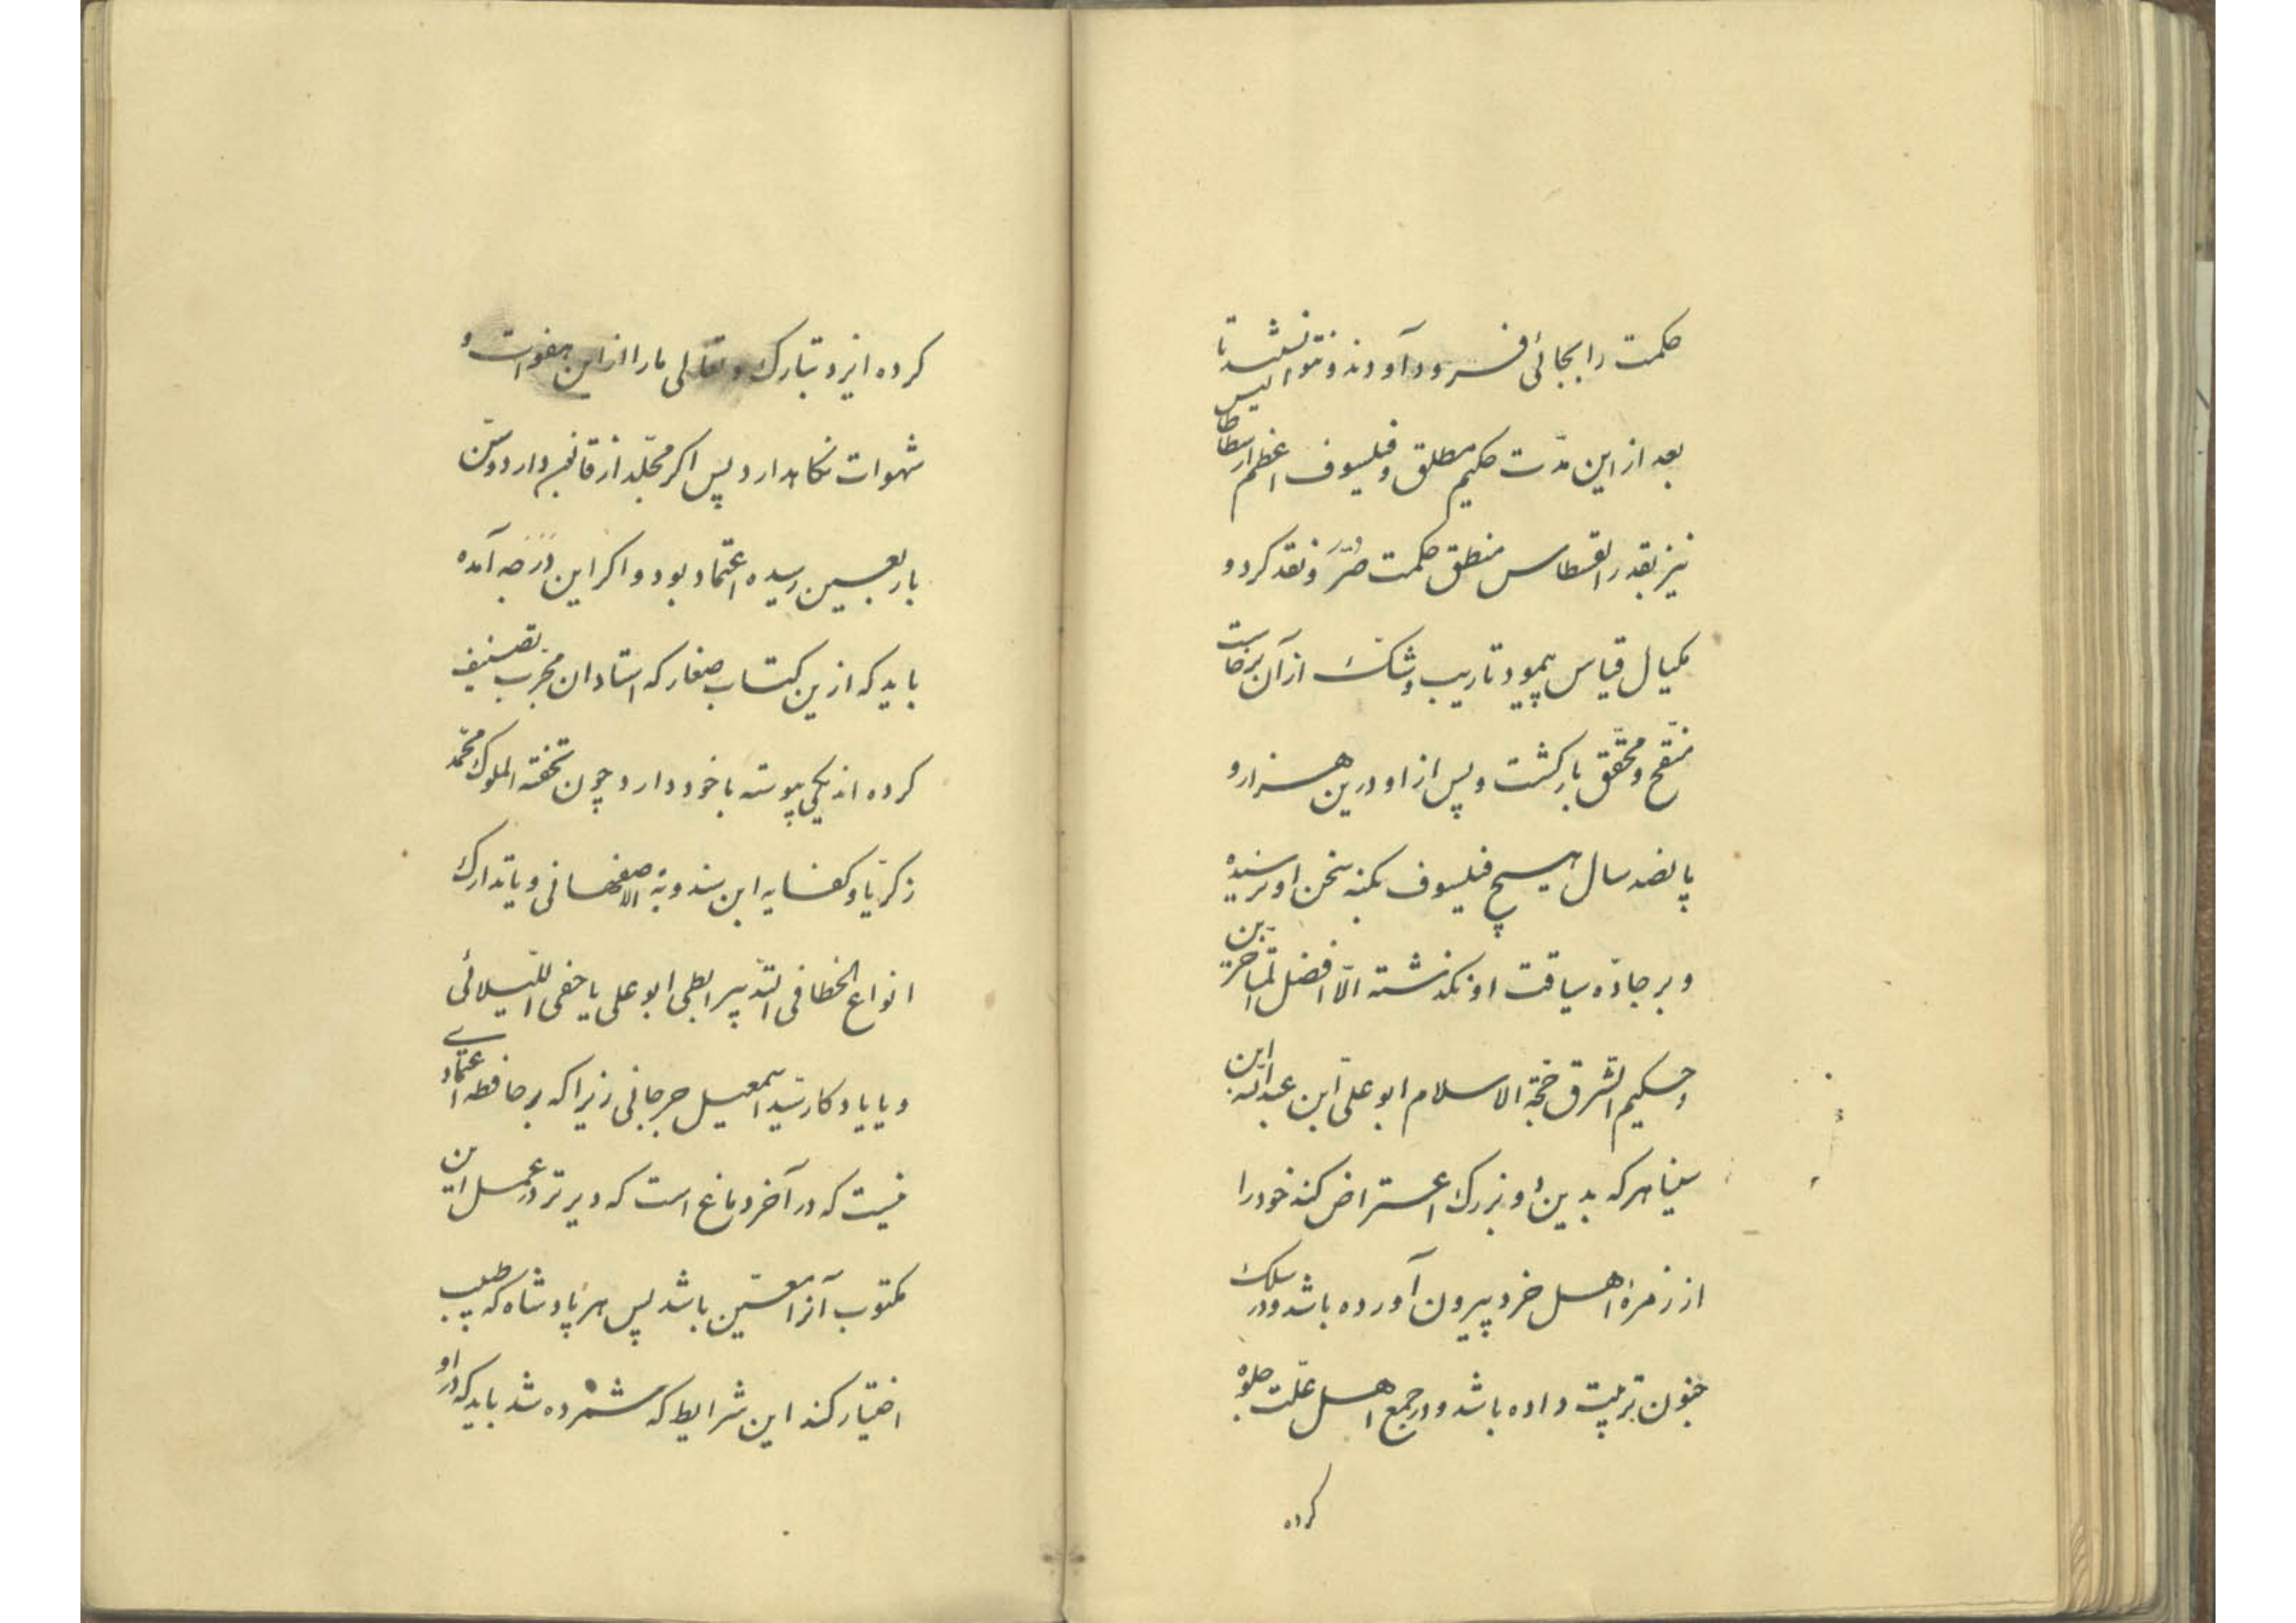 حکمت را بجائی فرود آوردند و نتوانستند تا
بعد از این مدّت حکیم مطلق و فیلسوف اعظم ارسطاطالیس
نیز بقدر القسطاس منطق حکمت و نقد کرد و
بمکیال قیاس بپیمود تا ریب و شک از آن برخاست
منقّح و محقّق بازگشت و پس از او درین هزار و
پانصد سال هیچ فیلسوف بکنه سخن او نرسیده
و بر جادّه سیاقت او نگذشته الّا افضل المتأخرین
و حکیم الشرق حجّة الاسلام ابو علی ابن عبدالله ابن
سینا هر که بدین دو بزرگ اعتراض کند خود را
از زمرۀ اهل خرد بیرون آورده باشد و در سلک
جنون ترتیب داده باشد و در جمع اهل علّت جلوه
کرده
کرده ایزد تبارک و تعالی ما را از این هفوات و
شهوات نگاهدارد پس اگر مجلّد از قانون دارد و سن
باربعین رسیده اعتماد بود و اگر این درجه آمده
باید که ازین کتاب صغار که استادان مجرّب تصنیف
کرده اند یکی پیوسته با خود دارد چون تحفة الملوک محمّد
زکریّا و کفایه ابن مندویة الاصفهانی و یا تدارک
انواع الخطا فی التدبیر الطبی ابو علی یا خفی اللیلائی
و یا یادکار سیّد اسمعیل جرجانی زیرا که بر حافظه اعتمادی
نیست که در آخر دماغ است که دیرتر در عمل این
مکتوب آنرا معین باشد پس هر پادشاه که طبیب
اختیار کند این شرایط که شمرده شد باید که در او